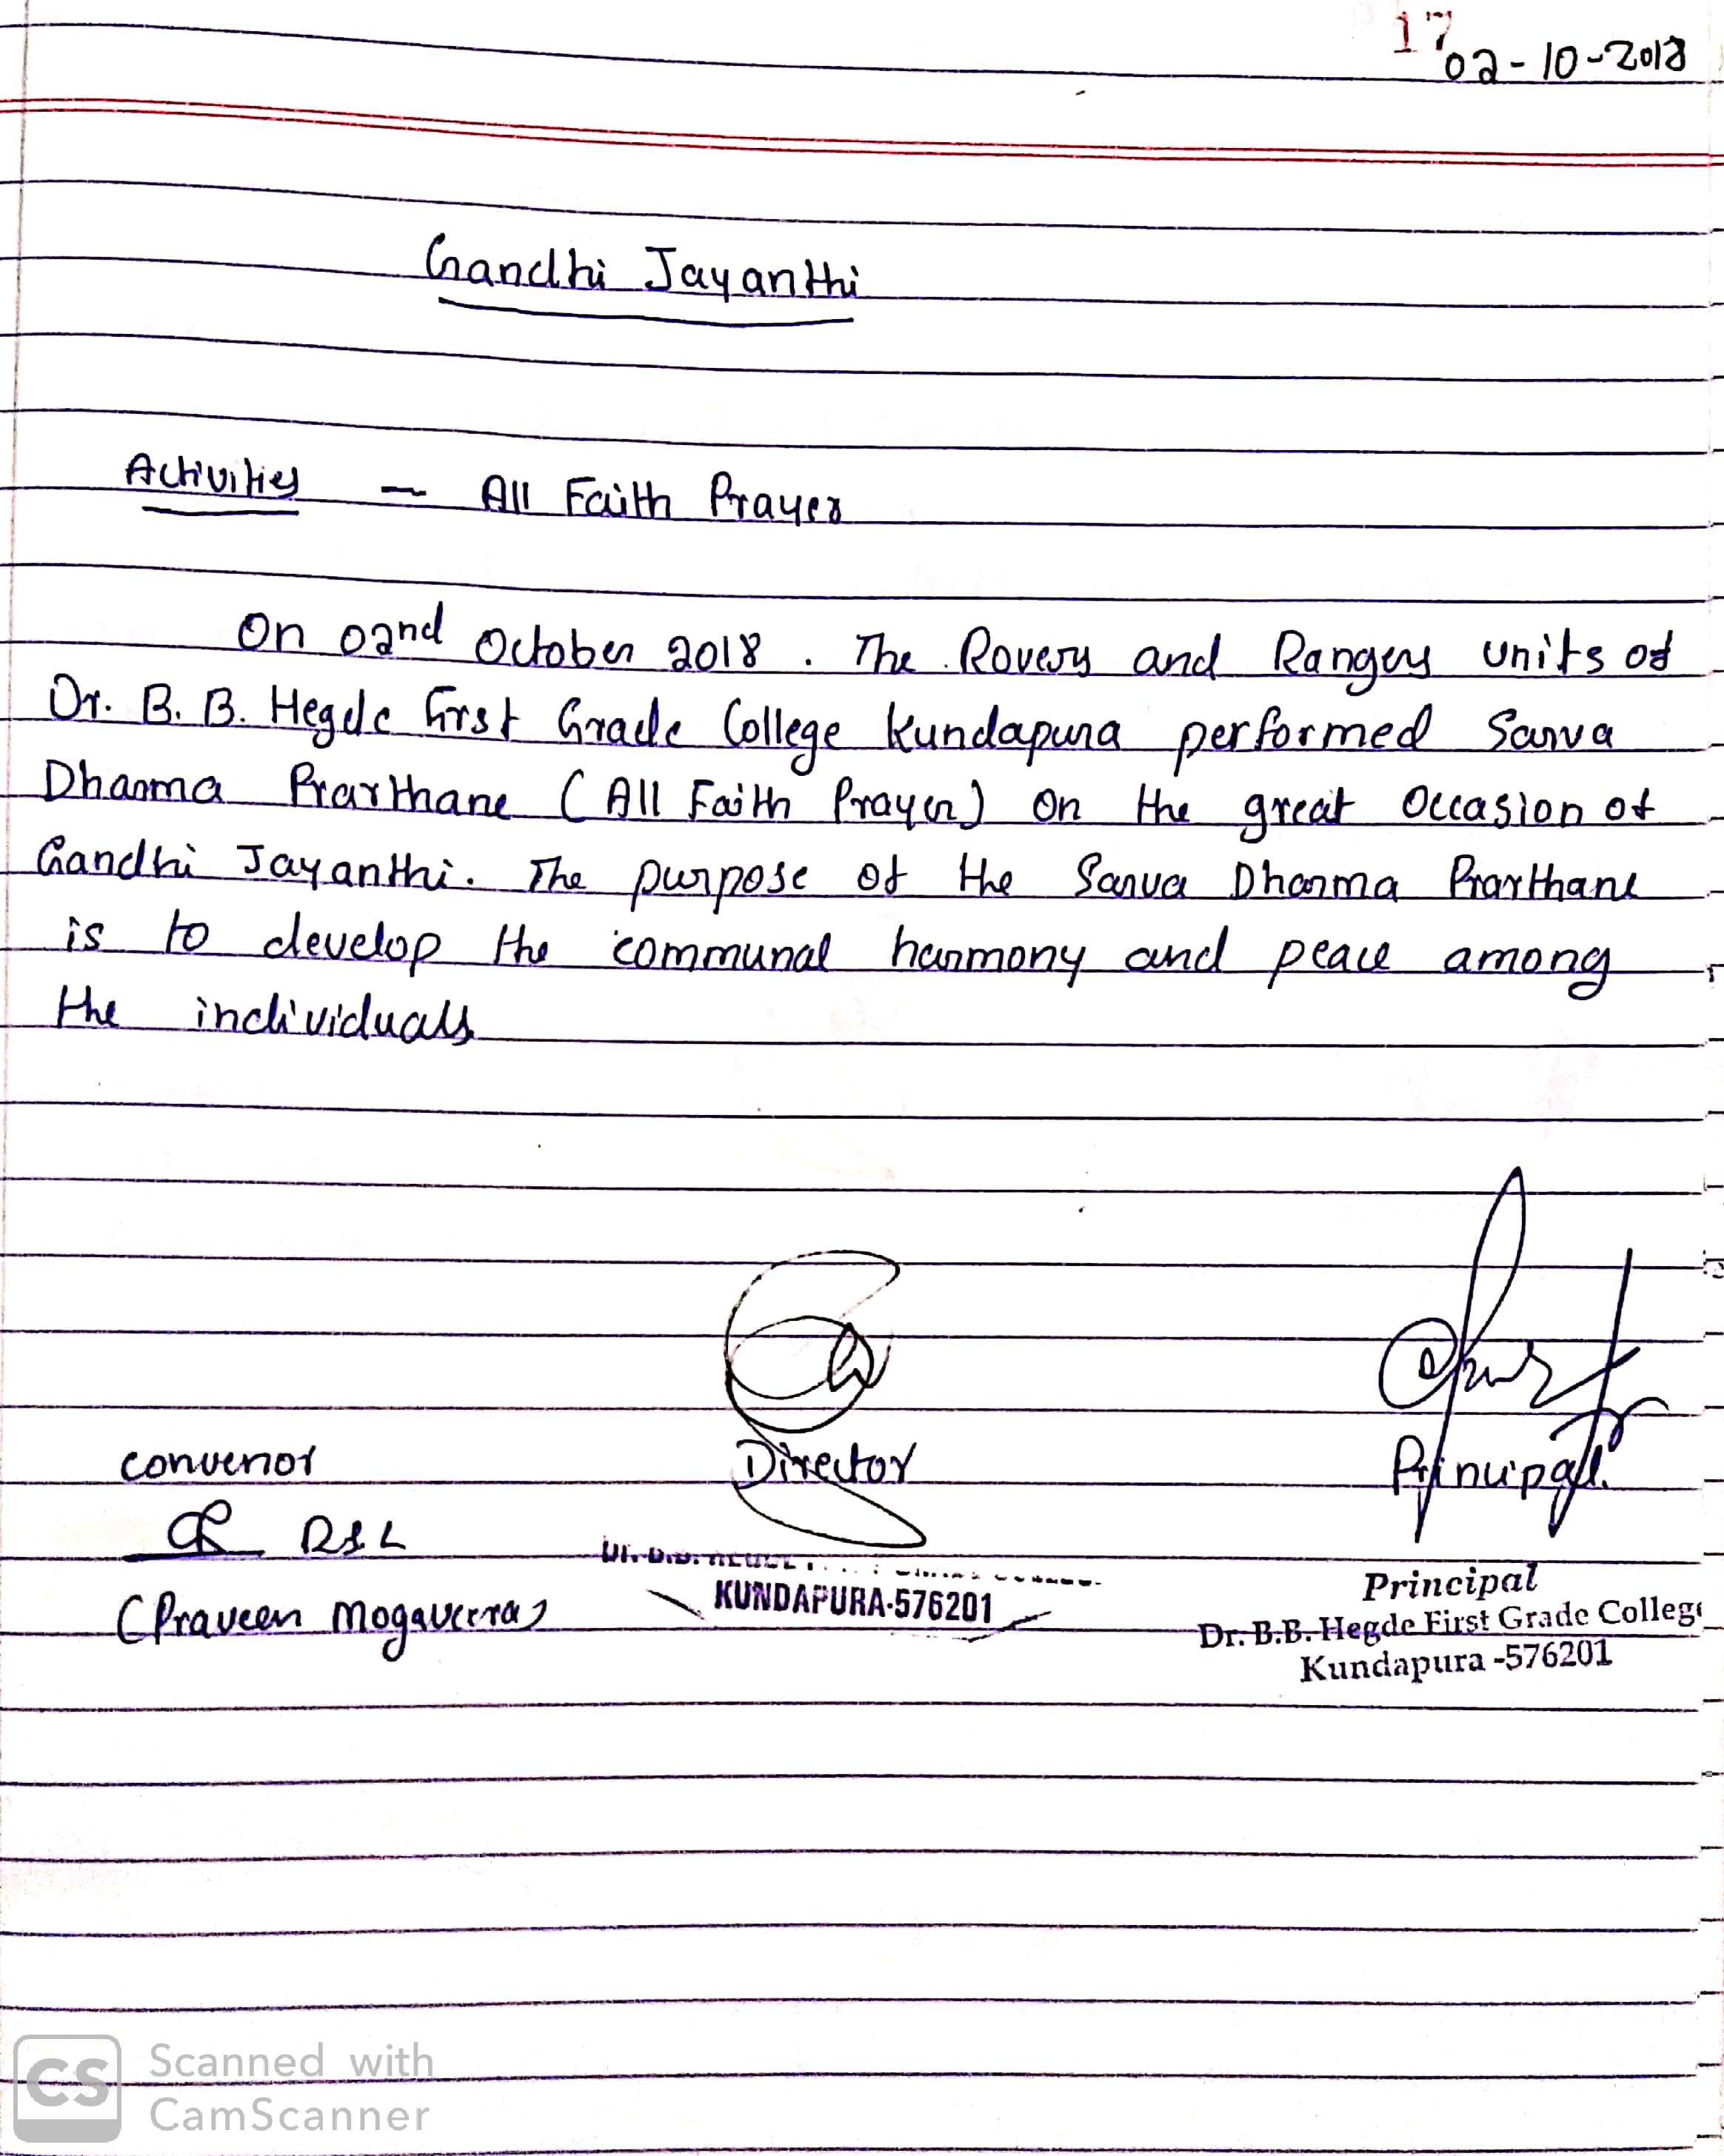 17
02-10-2018
Gandhi Jayanthi
Activities - All Faith Prayer
On 02nd October 2018. The Rovers and Rangers units of
Dr. B. B. Hegde First Grade College Kundapura performed Sarva
Dharma Prarthane (All Faith Prayer) on the great occasion of
Gandhi Jayanthi. The purpose of the Sarva Dharma Prarthane
is to develop the communal harmony and peace among
the individuals
convenor Director Principal
RSL
(Praveen Mogaveera)
KUNDAPURA-576201
Principal
Dr. B.B. Hegde First Grade College
Kundapura -576201
CS Scanned with
CamScanner